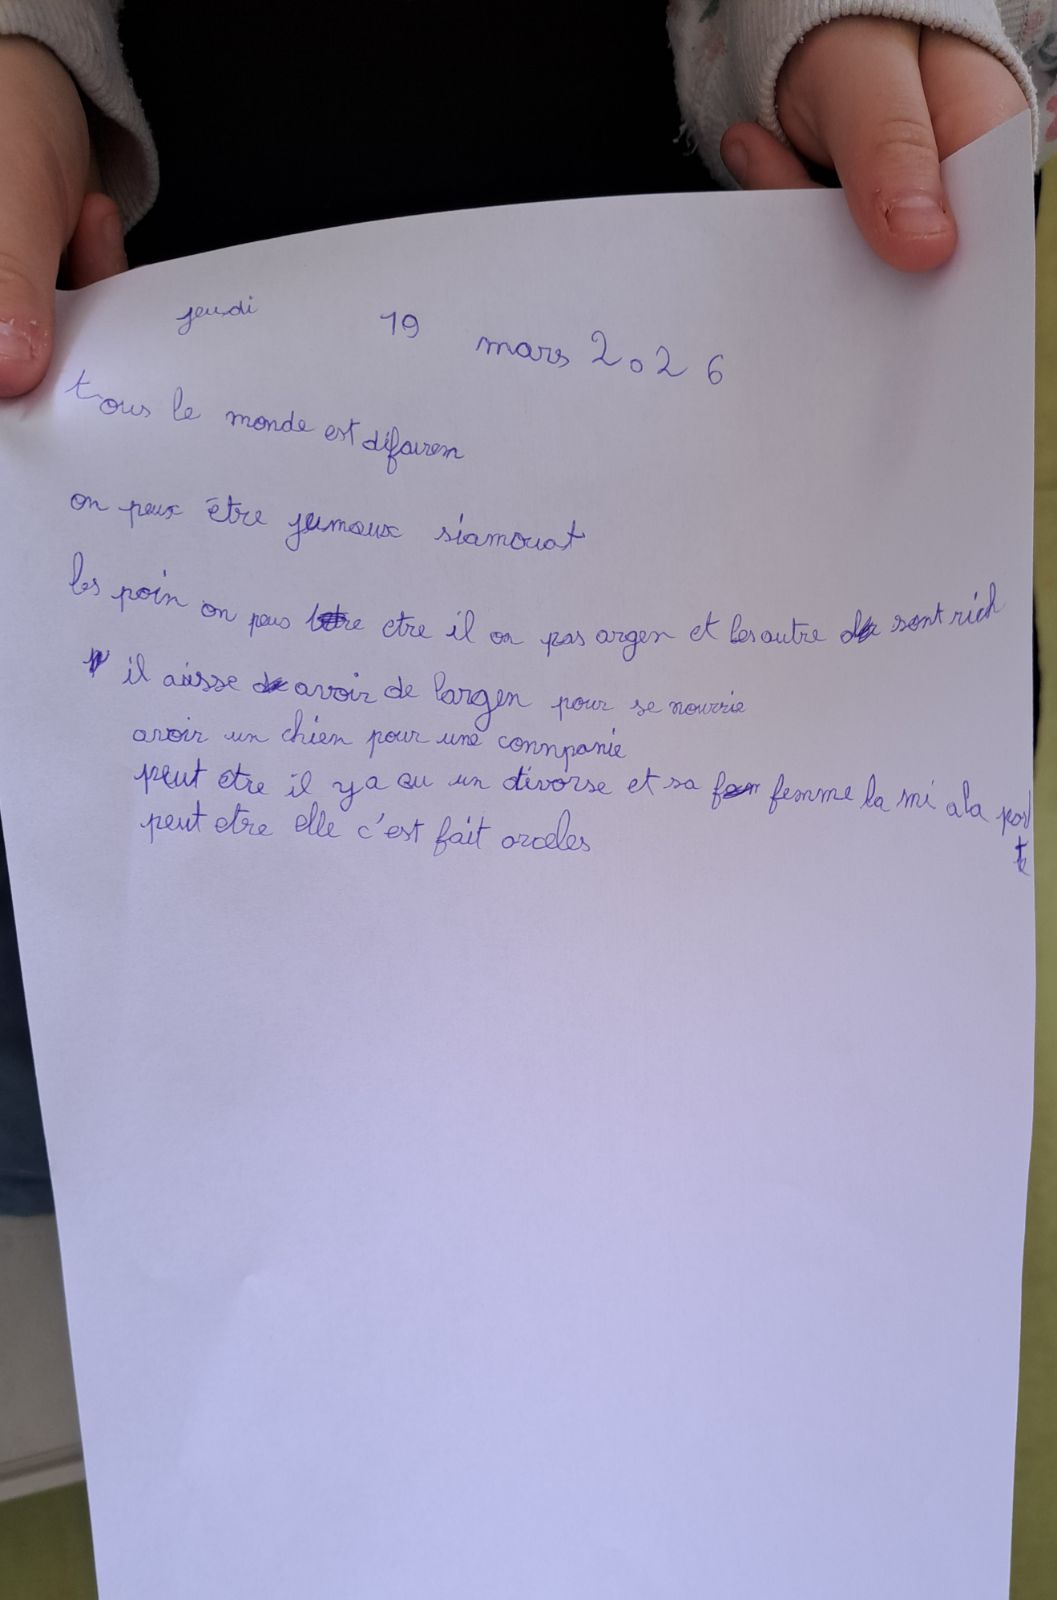 jeudi 19 mars 2026
tous le monde est difairen
on peux être jumeaux siamouat
les poin on peus etre il on pas argen et les autre sont rich
il aisse avoir de l'argen pour se nourrie
avoir un chien pour une connpanie
peut etre il y a eu un divorse et sa femme la mi a la port
te
peut etre elle c'est fait arceles